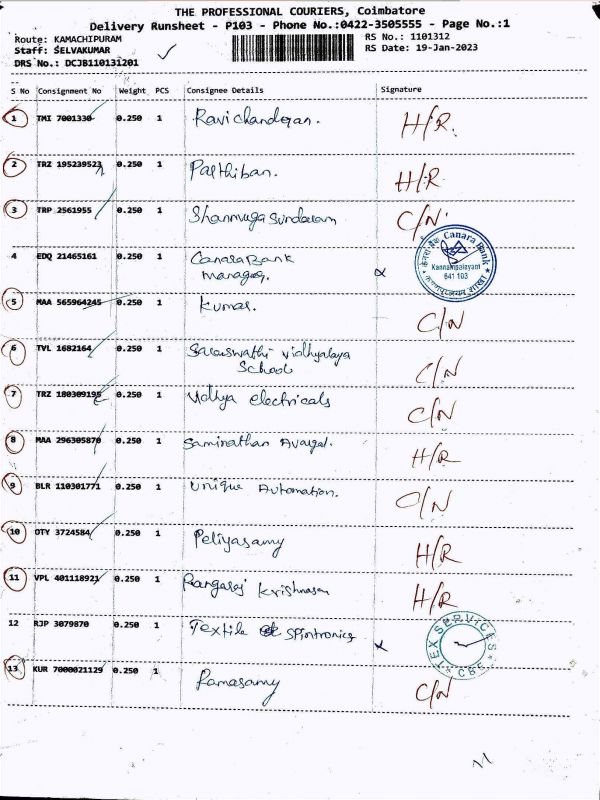 THE PROFESSIONAL COURIERS, Coimbatore
Delivery Runsheet - P103 - Phone No.:0422-3505555 - Page No.:1
Route: KAMACHIPURAM RS No.: 1101312
Staff: SELVAKUMAR RS Date: 19-Jan-2023
DRS No.: DCJB110131201
S No Consignment No Weight PCS Consignee Details Signature
1 TMI 7001330 0.250 1 Ravichandran. H/R.
2 TRZ 195239523 0.250 1 Parthiban. H/R
3 TRP 2561955 0.250 1 Shanmuga Sundaram C/N
4 EDQ 21465161 0.250 1 Canara Bank
Manager. Canara Bank Kannampalayam 641 103
5 MAA 565964245 0.250 1 Kumar. C/N
6 TVL 1682164 0.250 1 Saraswathi Vidhyalaya
School C/N
7 TRZ 180309195 0.250 1 Vidhya electricals C/N
8 MAA 296305870 0.250 1 Saminathan Avargal. H/R
9 BLR 110301771 0.250 1 Unique Automation. C/N
10 OTY 3724584 0.250 1 Periyasamy H/R
11 VPL 401118921 0.250 1 Rangaraj Krishnasam H/R
12 RJP 3079870 0.250 1 Textile Spintronics TEX SERVICES CBE
13 KUR 7000021129 0.250 1 Ramasamy C/N
11